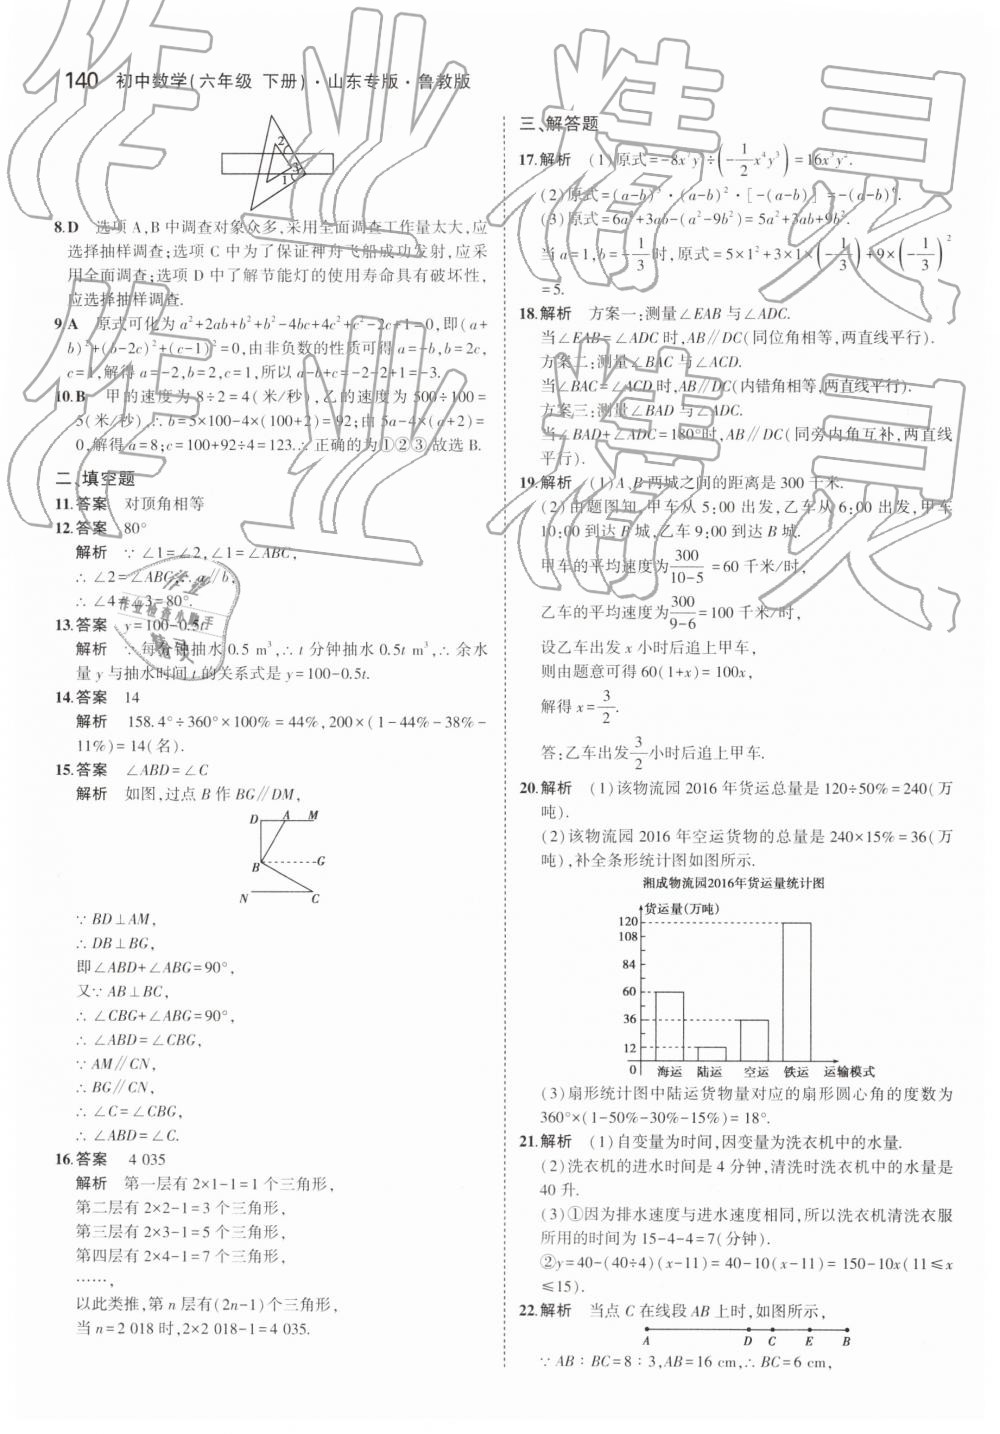 140 初中数学(六年级 下册)·山东专版·鲁教版
2
3
1
8.D 选项A、B中调查对象众多,采用全面调查工作量太大,应
选择抽样调查;选项C中为了保证神舟飞船成功发射,应采
用全面调查;选项D中了解节能灯的使用寿命具有破坏性,
应选择抽样调查.
9.A 原式可化为a²+2ab+b²+b²-4bc+4c²+c²-2c+1=0,即(a+
b)²+(b-2c)²+(c-1)²=0,由非负数的性质可得a=-b,b=2c,
c=1,解得a=-2,b=2,c=1,所以a-b+c=-2-2+1=-3.
10.B 甲的速度为8÷2=4(米/秒),乙的速度为500÷100=
5(米/秒).∴b=5×100-4×(100+2)=92;由5a-4×(a+2)=
0,解得a=8;c=100+92÷4=123.∴正确的为①②③.故选B.
二、填空题
11.答案 对顶角相等
12.答案 80°
解析 ∵∠1=∠2,∠1=∠ABC,
∴∠2=∠ABC,∴a∥b,
∴∠4=∠3=80°.
13.答案 y=100-0.5t
解析 ∵每分钟抽水0.5 m³,∴t分钟抽水0.5t m³,∴余水
量y与抽水时间t的关系式是y=100-0.5t.
14.答案 14
解析 158.4°÷360°×100%=44%,200×(1-44%-38%-
11%)=14(名).
15.答案 ∠ABD=∠C
解析 如图,过点B作BG∥DM,
D A M
B G
N C
∵BD⊥AM,
∴DB⊥BG,
即∠ABD+∠ABG=90°,
又∵AB⊥BC,
∴∠CBG+∠ABG=90°,
∴∠ABD=∠CBG,
∵AM∥CN,
∴BG∥CN,
∴∠C=∠CBG,
∴∠ABD=∠C.
16.答案 4 035
解析 第一层有2×1-1=1个三角形,
第二层有2×2-1=3个三角形,
第三层有2×3-1=5个三角形,
第四层有2×4-1=7个三角形,
……,
以此类推,第n层有(2n-1)个三角形,
当n=2 018时,2×2 018-1=4 035.
三、解答题
17.解析 (1)原式=-8x⁷y⁷÷(-1/2x⁴y³)=16x³y⁴.
(2)原式=(a-b)³·(a-b)²·[-(a-b)]=-(a-b)⁶.
(3)原式=6a²+3ab-(a²-9b²)=5a²+3ab+9b².
当a=1,b=-1/3时,原式=5×1²+3×1×(-1/3)+9×(-1/3)²
=5.
18.解析 方案一:测量∠EAB与∠ADC.
当∠EAB=∠ADC时,AB∥DC(同位角相等,两直线平行).
方案二:测量∠BAC与∠ACD.
当∠BAC=∠ACD时,AB∥DC(内错角相等,两直线平行).
方案三:测量∠BAD与∠ADC.
当∠BAD+∠ADC=180°时,AB∥DC(同旁内角互补,两直线
平行).
19.解析 (1)A、B两城之间的距离是300千米.
(2)由题图知,甲车从5:00出发,乙车从6:00出发,甲车
10:00到达B城,乙车9:00到达B城.
甲车的平均速度为300/(10-5)=60千米/时,
乙车的平均速度为300/(9-6)=100千米/时,
设乙车出发x小时后追上甲车,
则由题意可得60(1+x)=100x,
解得x=3/2.
答:乙车出发3/2小时后追上甲车.
20.解析 (1)该物流园2016年货运总量是120÷50%=240(万
吨).
(2)该物流园2016年空运货物的总量是240×15%=36(万
吨),补全条形统计图如图所示.
湘成物流园2016年货运量统计图
货运量(万吨)
120
108
84
60
36
12
0 海运 陆运 空运 铁运 运输模式
(3)扇形统计图中陆运货物量对应的扇形圆心角的度数为
360°×(1-50%-30%-15%)=18°.
21.解析 (1)自变量为时间,因变量为洗衣机中的水量.
(2)洗衣机的进水时间是4分钟,清洗时洗衣机中的水量是
40升.
(3)①因为排水速度与进水速度相同,所以洗衣机清洗衣服
所用的时间为15-4-4=7(分钟).
②y=40-(40÷4)(x-11)=40-10(x-11)=150-10x(11≤x
≤15).
22.解析 当点C在线段AB上时,如图所示,
A D C E B
∵AB∶BC=8∶3,AB=16 cm,∴BC=6 cm,
作业精灵
作业精灵
作业
作业检查小助手